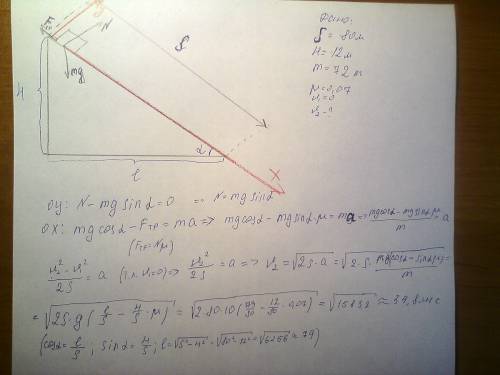 Дано:
S = 80м
H = 12м
m = 72т
μ = 0,07
v₁ = 0
v₂ - ?
N
mg
S
H
α
l
X
OY: N - mg sinα = 0 => N = mg sinα
OX: mg cosα - Fтр = ma => mg cosα - mg sinα·μ = ma => (mg cosα - mg sinα μ)/m = a
(Fтр = Nμ)
(v₂² - v₁²)/2S = a (т.к. v₁=0) => v₂²/2S = a => v₂ = √(2S·a) = √(2·S·mg(cosα - sinα μ)/m) =
= √(2S·g(l/S - H/S·μ)) = √(2·80·10(79/80 - 12/80·0,07)) = √15832 ≈ 39,8 м/с
(cosα = l/S ; sinα = H/S ; l = √(S² - H²) = √(80² - 12²) = √6256 ≈ 79)